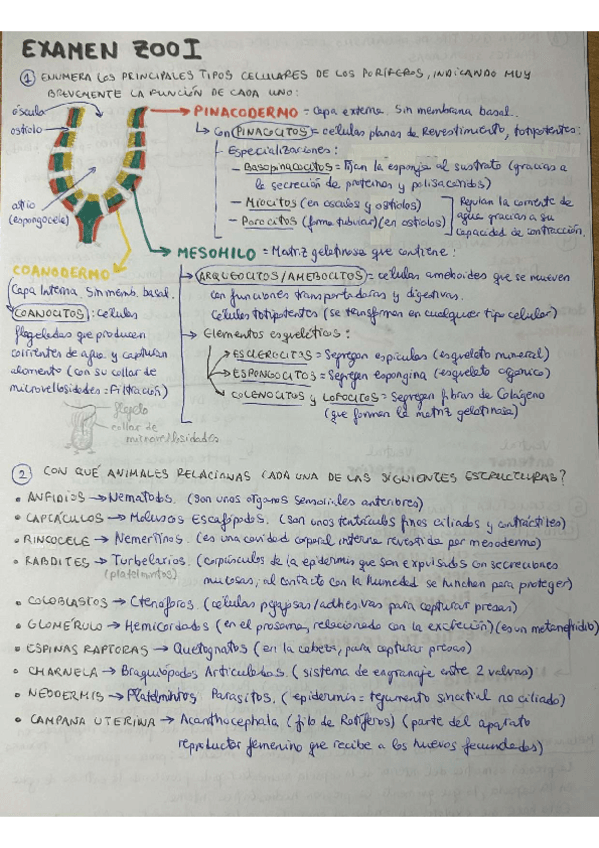 EXAMEN ZOO I
① ENUMERA LOS PRINCIPALES TIPOS CELULARES DE LOS PORÍFEROS, INDICANDO MUY
BREVEMENTE LA FUNCIÓN DE CADA UNO:
ósculo
ostiolo
atrio
(espongocele)
→ PINACODERMO = Capa externa. Sin membrana basal.
↳ Con PINACOCITOS = células planas de revestimiento, totipotentes:
- Especializaciones:
- Basopinacocitos = Fijan la esponja al sustrato (gracias a
la secreción de proteínas y polisacáridos)
- Miocitos (en ósculos y ostiolos)
- Porocitos (forma tubular) (en ostiolos)
Regulan la corriente de
agua gracias a su
capacidad de contracción.
→ MESOHILO = Matriz gelatinosa que contiene:
→ ARQUEOCITOS/AMEBOCITOS = células ameboides que se mueven
con funciones transportadoras y digestivas.
Células totipotentes (se transforman en cualquier tipo celular)
→ Elementos esqueléticos:
→ ESCLEROCITOS = Segregan espículas (esqueleto mineral)
→ ESPONGOCITOS = Segregan espongina (esqueleto orgánico)
→ COLENOCITOS y LOFOCITOS = Segregan fibras de Colágeno
(que forman la matriz gelatinosa)
COANODERMO
Capa Interna. Sin memb. basal.
COANOCITOS: células
flageladas que producen
corrientes de agua y capturan
alimento (con su collar de
microvellosidades = Filtración)
flagelo
collar de
microvellosidades
② CON QUÉ ANIMALES RELACIONAS CADA UNA DE LAS SIGUIENTES ESTRUCTURAS?
• ANFIDIOS → Nematodos. (Son unos órganos sensoriales anteriores)
• CAPTÁCULOS → Moluscos Escafópodos. (son unos tentáculos finos ciliados y contráctiles)
• RINCOCELE → Nemertinos. (es una cavidad corporal interna revestida por mesodermo)
• RABDITES → Turbelarios. (corpúsculos de la epidermis que son expulsados con secreciones
(platelmintos)
mucosas, al contacto con la humedad se hinchan para proteger)
• COLOBLASTOS → Ctenóforos. (células pegajosas/adhesivas para capturar presas)
• GLOMÉRULO → Hemicordados (en el prosoma, relacionado con la excreción) (es un metanefridio)
• ESPINAS RAPTORAS → Quetognatos (en la cabeza, para capturar presas)
• CHARNELA → Braquiópodos Articulados. (sistema de engranaje entre 2 valvas)
• NEODERMIS → Platelmintos Parásitos. (epidermis = tegumento sincitial no ciliado)
• CAMPANA UTERINA → Acanthocephala (filo de Rotíferos) (parte del aparato
reproductor femenino que recibe a los huevos fecundados)